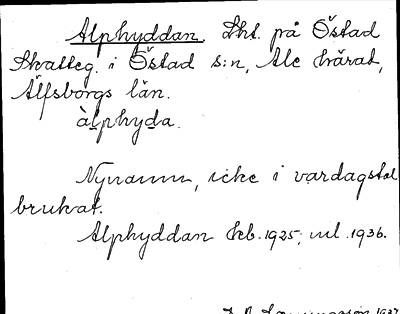 Alphyddan. Lht. på Östad
Skatteg. i Östad s:n, Ale härad,
Älfsborgs län.
àlphyda.
Nynamn, icke i vardagstal
brukat.
Alphyddan kb. 1925; ul. 1936.
1937